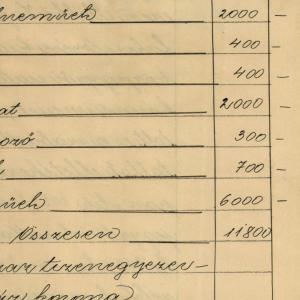 nemüek 2000 –
400 –
400 –
at 2000 –
ozó 300 –
k 700 –
ürek 6000 –
Összesen 11800
az tizenegyezer–
korona